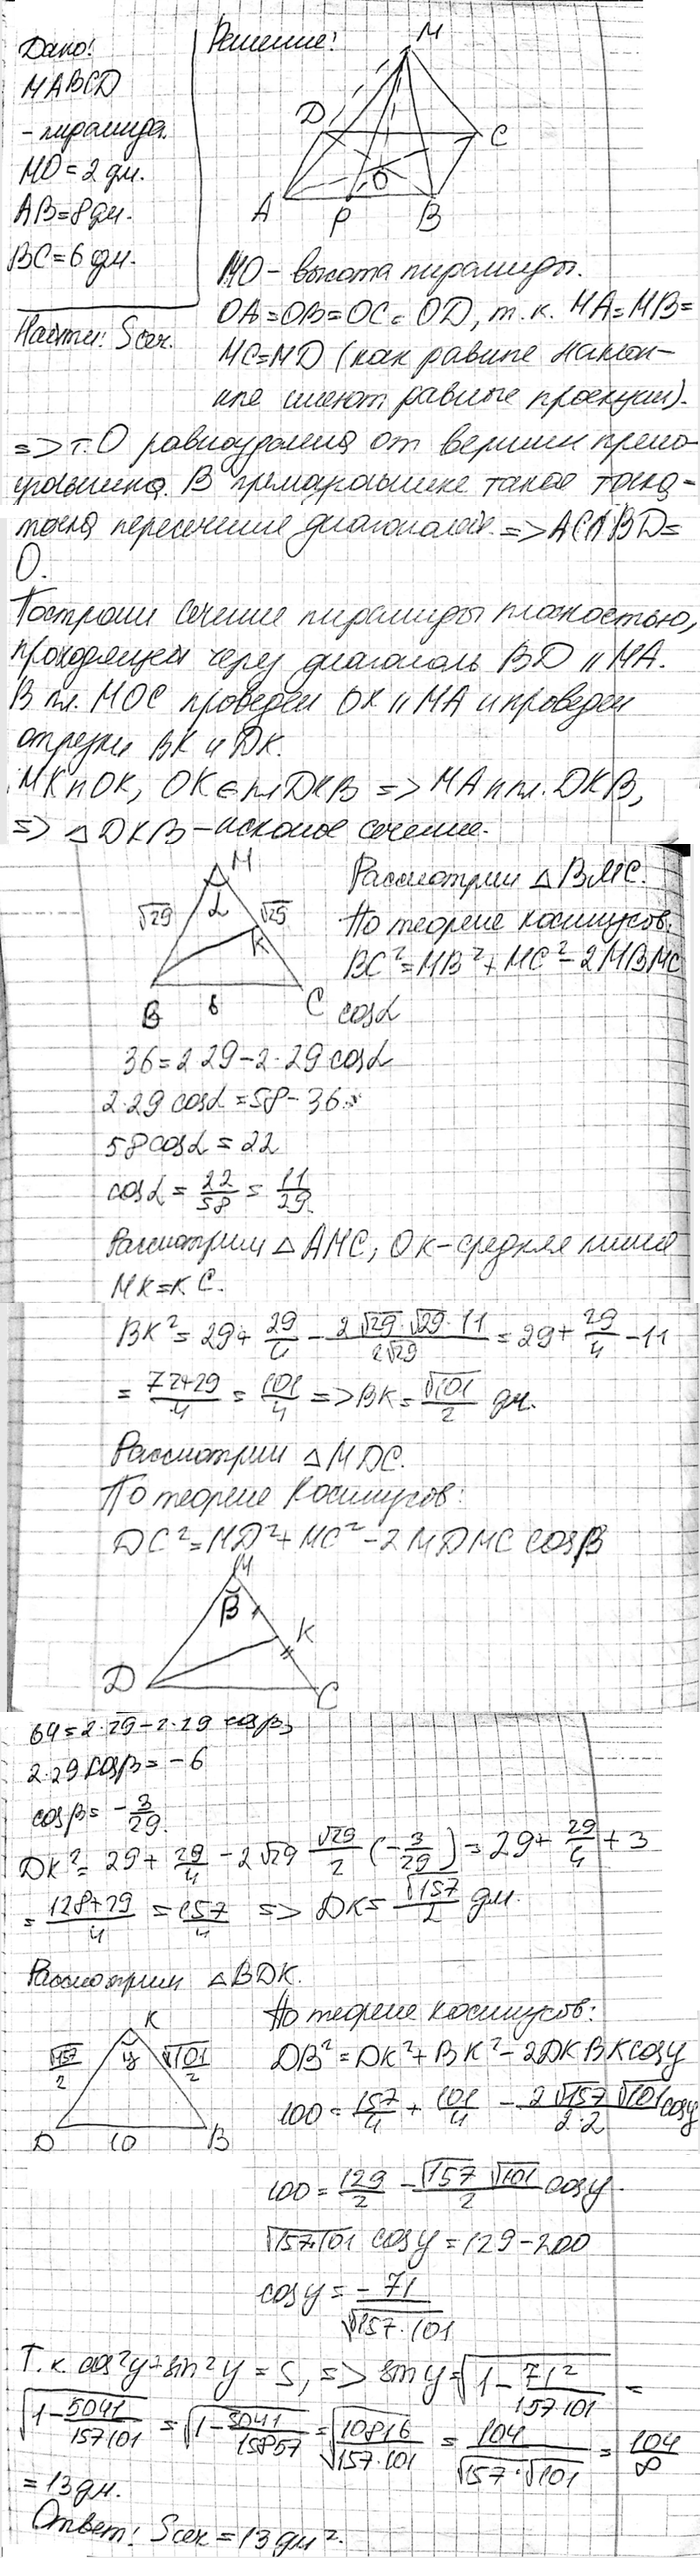 Дано!
MABCD
- пирамида.
MO = 2 дм.
AB = 8 дм.
BC = 6 дм.
Найти: Sсеч.
Решение!
M
D
C
O
A
P
B
MO - высота пирамиды.
OA = OB = OC = OD, т.к. MA = MB =
MC = MD (как равные наклон-
ные имеют равные проекции).
=> т.О равноудалена от вершин прямо-
угольника. В прямоугольнике такая точка -
точка пересечения диагоналей. => AC∩BD =
O.
Построим сечение пирамиды плоскостью,
проходящей через диагональ BD || MA.
В пл. MOC проведем OK || MA и проведем
отрезки BK и DK.
MK и OK, OK ∈ пл DKB => MA и пл. DKB,
=> △DKB - искомое сечение.
M
√29
α
√29
K
B
6
C
Рассмотрим △BMC.
По теореме косинусов:
BC² = MB² + MC² - 2MBMC
cosα
36 = 2·29 - 2·29 cosα
2·29 cosα = 58 - 36
58 cosα = 22
cosα = 22/58 = 11/29
Рассмотрим △AMC, OK - средняя линия
MK = KC.
BK² = 29 + 29/4 - 2√29·√29·11/2√29 = 29 + 29/4 - 11
= 72+29/4 = 101/4 => BK = √101/2 дм.
Рассмотрим △MDC.
По теореме косинусов:
DC² = MD² + MC² - 2MDMC cosβ
M
β
K
D
C
64 = 2·29 - 2·29 cosβ
2·29 cosβ = -6
cosβ = -3/29.
DK² = 29 + 29/4 - 2√29 √29/2 (-3/29) = 29 + 29/4 + 3
= 128+29/4 = 157/4 => DK = √157/2 дм.
Рассмотрим △BDK.
K
√157/2
y
√101/2
D
10
B
По теореме косинусов:
DB² = DK² + BK² - 2DKBKcosy
100 = 157/4 + 101/4 - 2√157 √101/2·2 cosy
100 = 129/2 - √157 √101/2 cosy
√157·101 cosy = 129 - 200
cosy = -71/√157·101
Т.к. cos²y + sin²y = S, => siny = √1 - 71²/157·101 =
√1 - 5041/157101 = √1 - 5041/15857 = √10816/157·101 = 104/√157·√101 = 104/∞
= 13 дм.
Ответ! Sсеч = 13 дм².